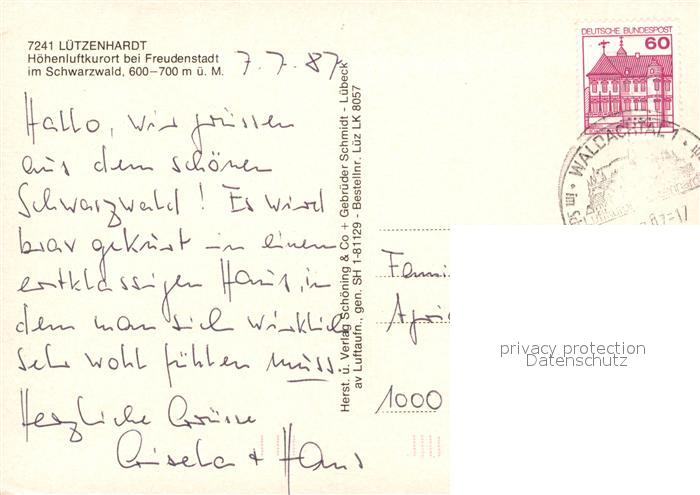 7241 LÜTZENHARDT
Höhenluftkurort bei Freudenstadt
im Schwarzwald, 600–700 m ü. M.
7.7.87
Hallo, wir grüssen
aus dem schönen
Schwarzwald! Es wird
brav gekurt in einem
erstklassigen Haus, in
dem man sich wirklich
sehr wohl fühlen muss.
Herzliche Grüsse
Gisela + Hans
Herst. u. Verlag Schöning & Co + Gebrüder Schmidt - Lübeck
av Luftaufn., gen. SH 1-81129 - Bestellnr. Lüz LK 8057
DEUTSCHE BUNDESPOST
60
WALDACHTAL 1
Fami
1000
privacy protection
Datenschutz